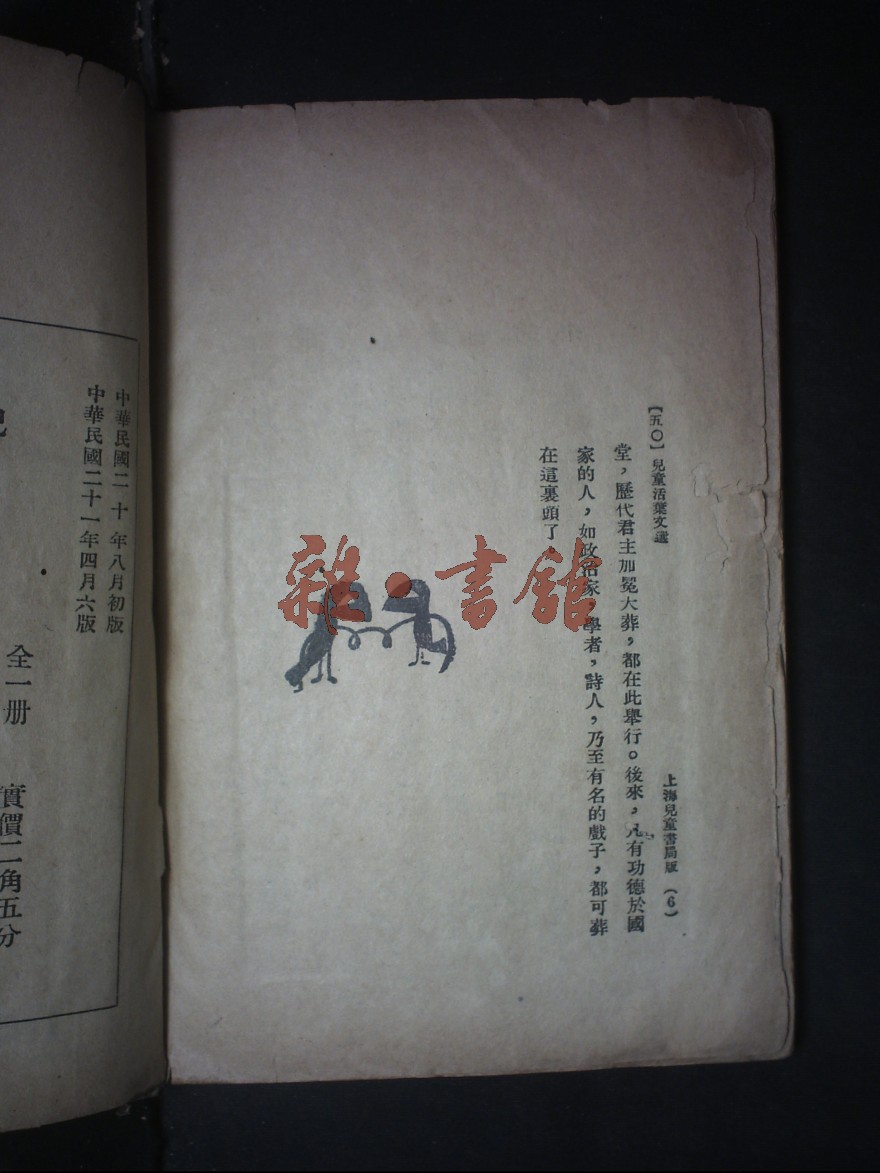 【五〇】兒童活葉文選 上海兒童書局版 (6)
堂，歷代君主加冕大葬，都在此舉行。後來，凡有功德於國
家的人，如政治家，學者，詩人，乃至有名的戲子，都可葬
在這裏頭了。
雜·書館
中華民國二十年八月初版
中華民國二十一年四月六版
全一册 實價二角五分